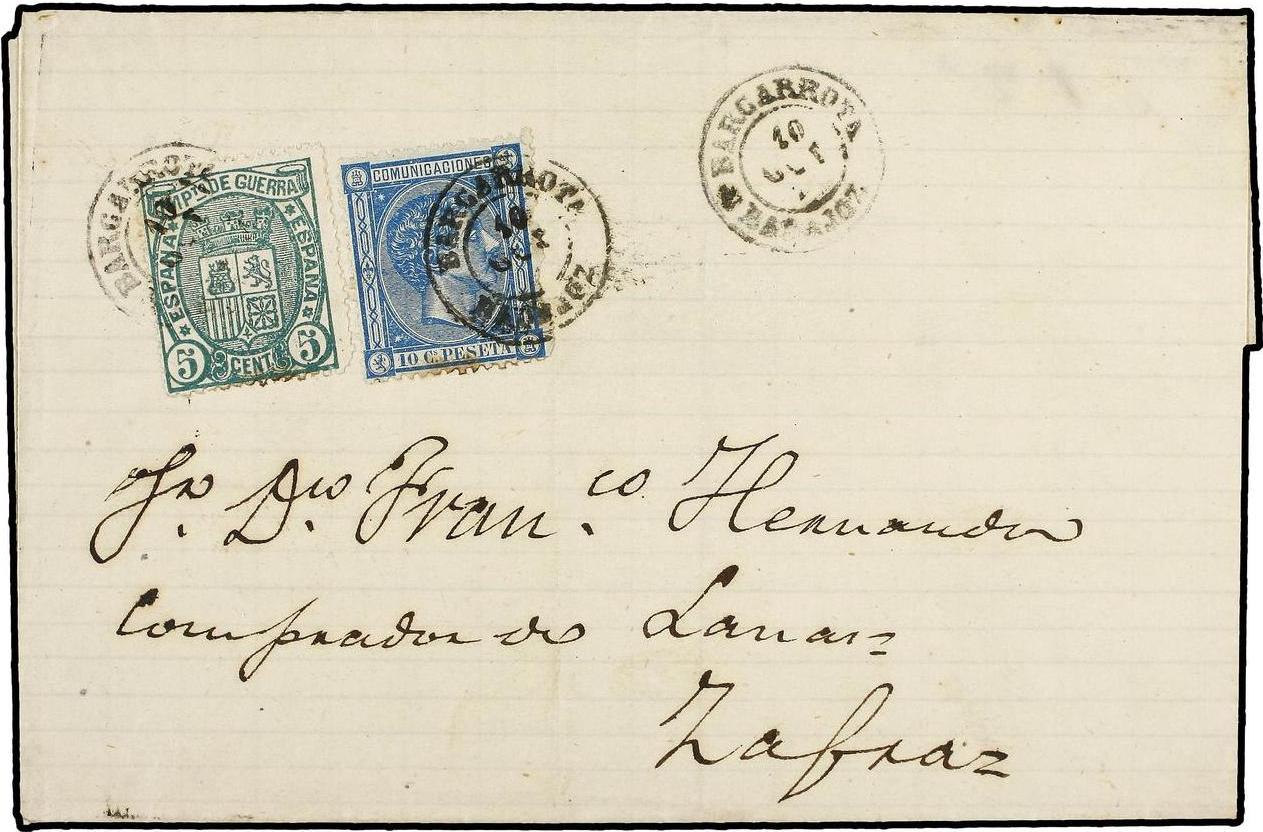 BARCARROTA
10
OCT
BADAJOZ
BARCARROTA
10
IMPTO DE GUERRA
ESPAÑA
ESPAÑA
5 CENT. 5
COMUNICACIONES
10 C. PESETA
BARCARROTA
10
OCT
BADAJOZ
Sr. Dn. Fran.co Hernandez
Comprador de Lanas
Zafra